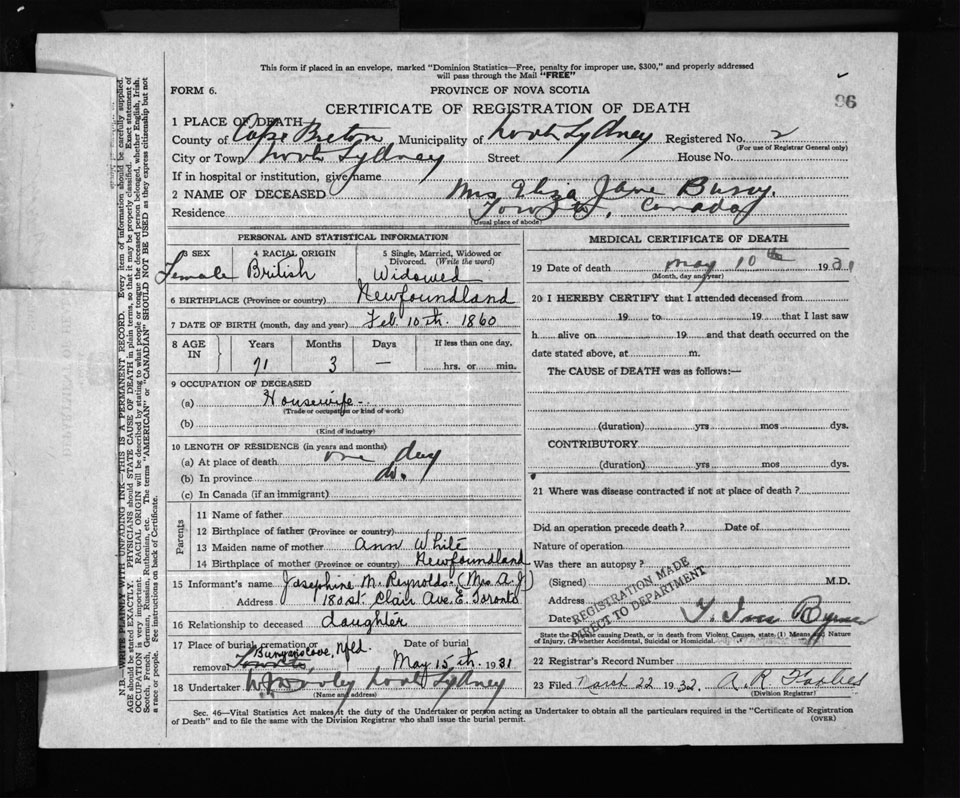 This form if placed in an envelope, marked "Dominion Statistics—Free, penalty for improper use, $300," and properly addressed
will pass through the Mail "FREE"
FORM 6. PROVINCE OF NOVA SCOTIA
96
CERTIFICATE OF REGISTRATION OF DEATH
1 PLACE OF DEATH—
County of Cape Breton Municipality of North Sydney Registered No. 2
(For use of Registrar General only)
City or Town North Sydney Street House No.
If in hospital or institution, give name
2 NAME OF DECEASED Mrs Eliza Jane
Residence Canada
(Usual place of abode)
PERSONAL AND STATISTICAL INFORMATION
3 SEX 4 RACIAL ORIGIN 5 Single, Married, Widowed or
Divorced. (Write the word)
Female British Widowed
6 BIRTHPLACE (Province or country) Newfoundland
7 DATE OF BIRTH (month, day and year) Feb. 10th. 1860
8 AGE IN Years Months Days If less than one day,
71 3 — hrs. or min.
9 OCCUPATION OF DECEASED
(a) Housewife
(Trade or occupation or kind of work)
(b)
(Kind of industry)
10 LENGTH OF RESIDENCE (in years and months)
(a) At place of death one day
(b) In province do.
(c) In Canada (if an immigrant)
Parents
11 Name of father
12 Birthplace of father (Province or country)
13 Maiden name of mother Ann White
14 Birthplace of mother (Province or country) Newfoundland
15 Informant's name Josephine M. Reynolds. (Mrs A. J)
Address 180 St. Clair Ave. E. Toronto
16 Relationship to deceased daughter
17 Place of burial, cremation or Date of burial
removal Nfld. May 15th. 1931
18 Undertaker North Sydney
(Name and address)
MEDICAL CERTIFICATE OF DEATH
19 Date of death May 10th 1931
(Month, day and year)
20 I HEREBY CERTIFY that I attended deceased from
19 to 19 that I last saw
h alive on 19 and that death occurred on the
date stated above, at m.
The CAUSE of DEATH was as follows:—
(duration) yrs mos dys.
CONTRIBUTORY
(duration) yrs mos dys.
21 Where was disease contracted if not at place of death?
Did an operation precede death? Date of
Nature of operation
Was there an autopsy?
(Signed) M.D.
Address
Date
REGISTRATION MADE
DIRECT TO DEPARTMENT
State the Disease causing Death, or in death from Violent Causes, state, (1) Means and Nature
of Injury, (2) Whether Accidental, Suicidal or Homicidal.
22 Registrar's Record Number
23 Filed March 22 1932. A. R. Forbes
(Division Registrar)
Sec. 46—Vital Statistics Act makes it the duty of the Undertaker or person acting as Undertaker to obtain all the particulars required in the "Certificate of Registration
of Death" and to file the same with the Division Registrar who shall issue the burial permit. (OVER)
N.B.—WRITE PLAINLY WITH UNFADING INK—THIS IS A PERMANENT RECORD. Every item of information should be carefully supplied.
AGE should be stated EXACTLY. PHYSICIANS should STATE CAUSE OF DEATH in plain terms, so that it may be properly classified. Exact statement of
OCCUPATION is very important. RACIAL ORIGIN will be described by stating to what people or tongue the deceased person belonged, whether English, Irish,
Scotch, French, German, Russian, Ruthenian, etc. The terms "AMERICAN" or "CANADIAN" SHOULD NOT BE USED as they express citizenship but not
a race or people. See instructions on back of Certificate.